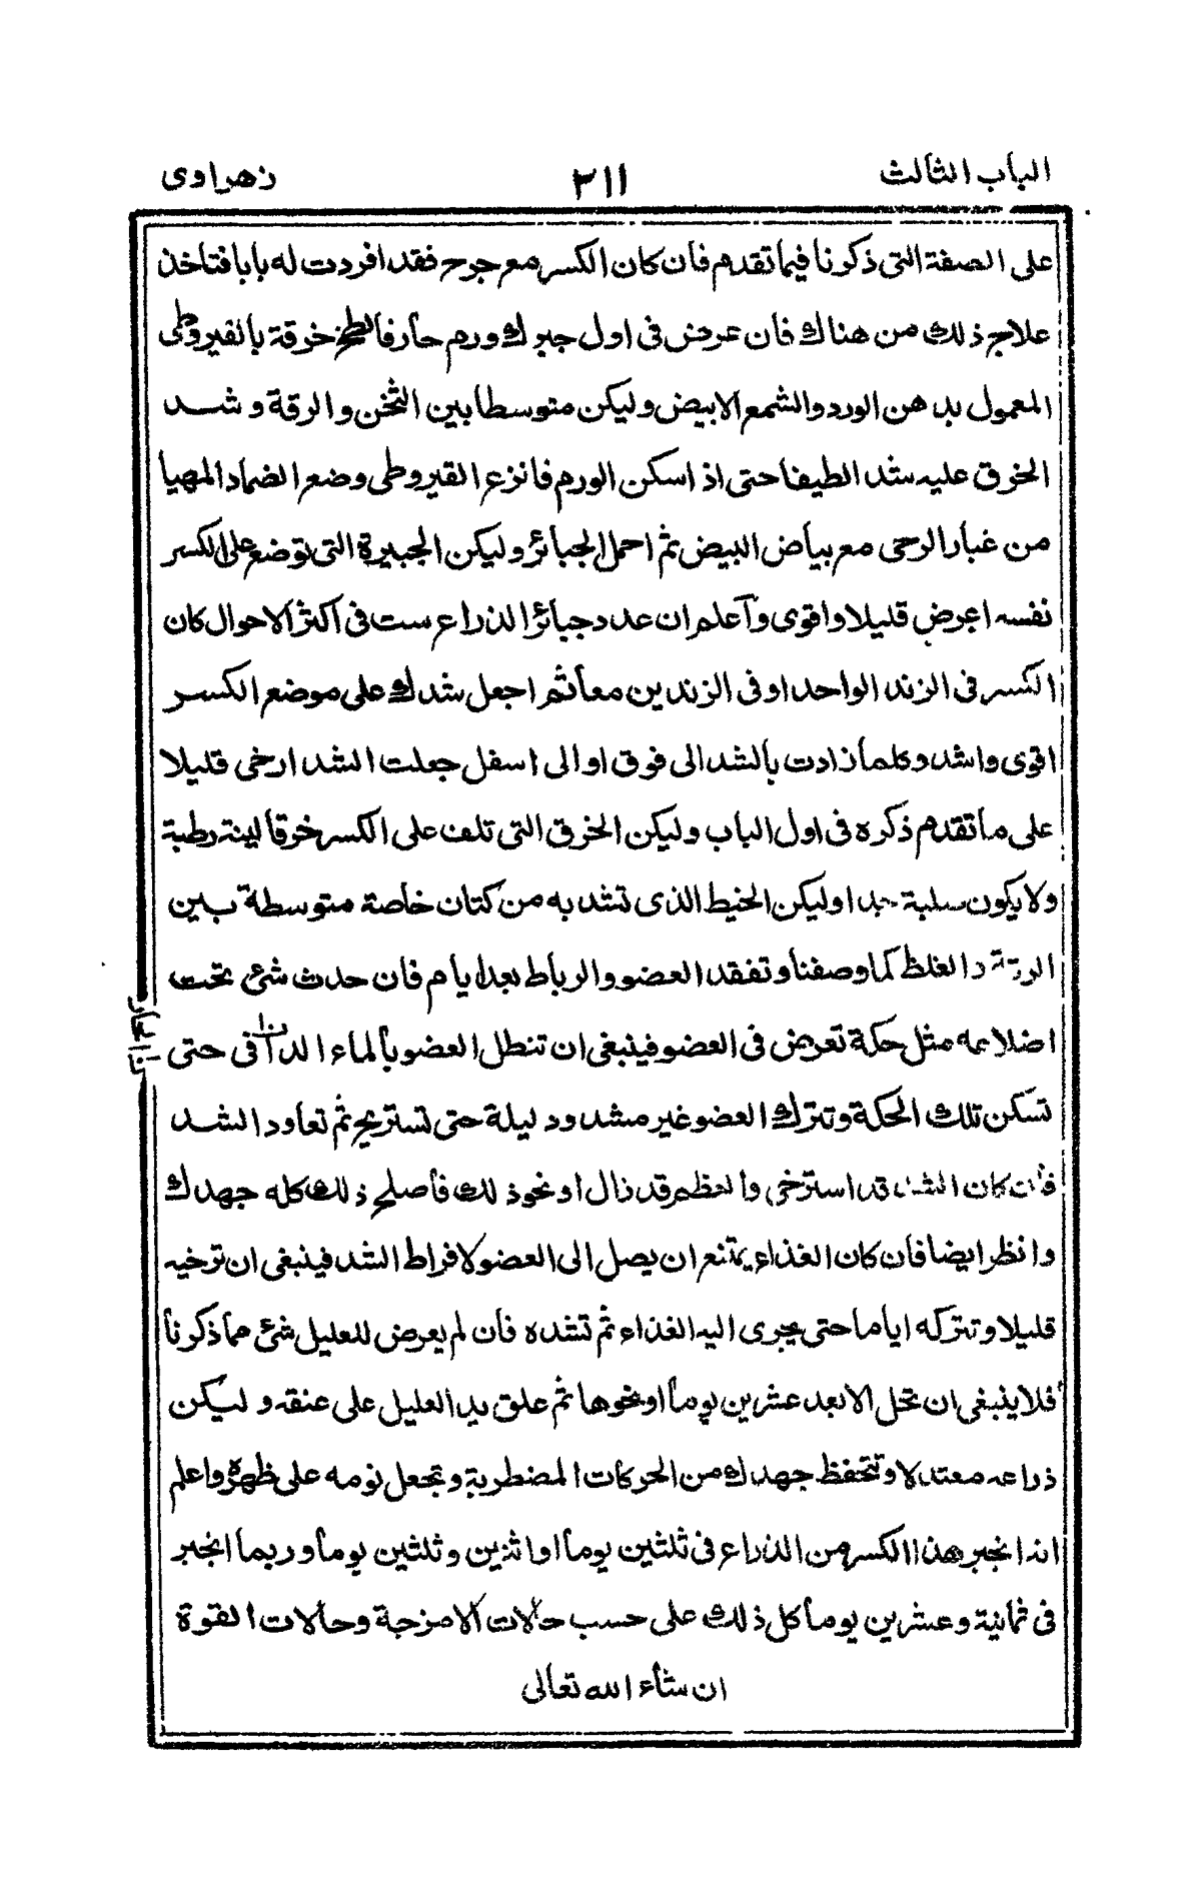 الباب الثالث ٢١١ زهراوی
على الصفة التى ذكرنا فيما تقدم فان كان الكسر مع جرح فقد افردت له بابا فتاخذ
علاج ذلك من هناك فان عرض فى اول جبرك ورم حار فالطخ خرقة بالقيروطى
المعمول بدهن الورد والشمع الابيض وليكن متوسطا بين الثخن والرقة وشد
الخرق عليه شدا لطيفا حتى اذا سكن الورم فانزع القيروطى وضع الضماد المهيا
من غبار الرحى مع بياض البيض ثم احمل الجبائر وليكن الجبيرة التى توضع على الكسر
نفسه اعرض قليلا واقوى واعلم ان عدد جبائر الذراع ست فى اكثر الاحوال كان
الكسر فى الزند الواحد او فى الزندين معا ثم اجعل شدك على موضع الكسر
اقوى واشد وكلما زادت بالشد الى فوق او الى اسفل جعلت الشد ارخى قليلا
على ما تقدم ذكره فى اول الباب وليكن الخرق التى تلف على الكسر خرقا لينة رطبة
ولا يكون سلبة جدا وليكن الخيط الذى تشد به من كتان خاصة متوسطة بين
الرقة والغلظ كما وصفنا وتفقد العضو والرباط بعد ايام فان حدث شئ تحت
اضلاعه مثل حكة تعرض فى العضو فينبغى ان تنطل العضو بالماء الدافى حتى
تسكن تلك الحكة وتترك العضو غير مشدود ليلة حتى تستريح ثم تعاود الشد
فان كان الشد قد استرخى والعظم قد زال او نحو ذلك فاصلح ذلك كله جهدك
وانظر ايضا فان كان الغذاء يمتنع ان يصل الى العضو لافراط الشد فينبغى ان ترخيه
قليلا وتتركه اياما حتى يجرى اليه الغذاء ثم تشده فان لم يعرض للعليل شئ مما ذكرنا
فلا ينبغى ان تحل الا بعد عشرين يوما او نحوها ثم علق يد العليل على عنقه وليكن
ذراعه معتدلا وتتحفظ جهدك من الحركات المضطربة وتجعل نومه على ظهره واعلم
انه انجبر هذا الكسر من الذراع فى ثلثين يوما او اثنين وثلثين يوما وربما انجبر
فى ثمانية وعشرين يوما كل ذلك على حسب حالات الامزجة وحالات القوة
ان شاء الله تعالى